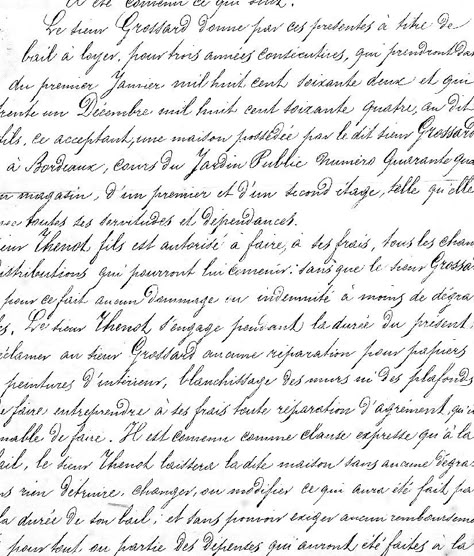 A été convenu ce qui suit.
Le sieur Grossard donne par ces présentes à titre de
bail à loyer, pour trois années consécutives, qui prendront
du premier Janvier mil huit cent soixante deux et qui
trente un Décembre mil huit cent soixante quatre, au dit
fils, ce acceptant, une maison possédée par le dit sieur Grossard
à Bordeaux, cours du Jardin Public Numéro Quarante
un magasin, d'un premier et d'un second étage, telle qu'elle
avec toutes ses servitudes et dépendances.
sieur Thenot fils est autorisé à faire, à ses frais, tous les chan
distributions qui pourront lui convenir; sans que le sieur Grossa
pour ce fait aucun dommage ou indemnité à moins de dégra
Le sieur Thenot s'engage pendant la durée du présent
réclamer au sieur Grossard aucune réparation pour papiers
peintures d'intérieur, blanchissage des murs ni des plafonds
faire entreprendre à ses frais toute réparation d'agrément qu'i
nable de faire. Il est convenu comme clause expresse qu'à la
ail, le sieur Thenot laissera la dite maison sans aucune dégra
ns rien détruire, changer, ou modifier ce qui aura été fait pa
la durée de son bail; et sans pouvoir exiger aucun remboursem
pour tout ou partie des dépenses qui auront été faites à la